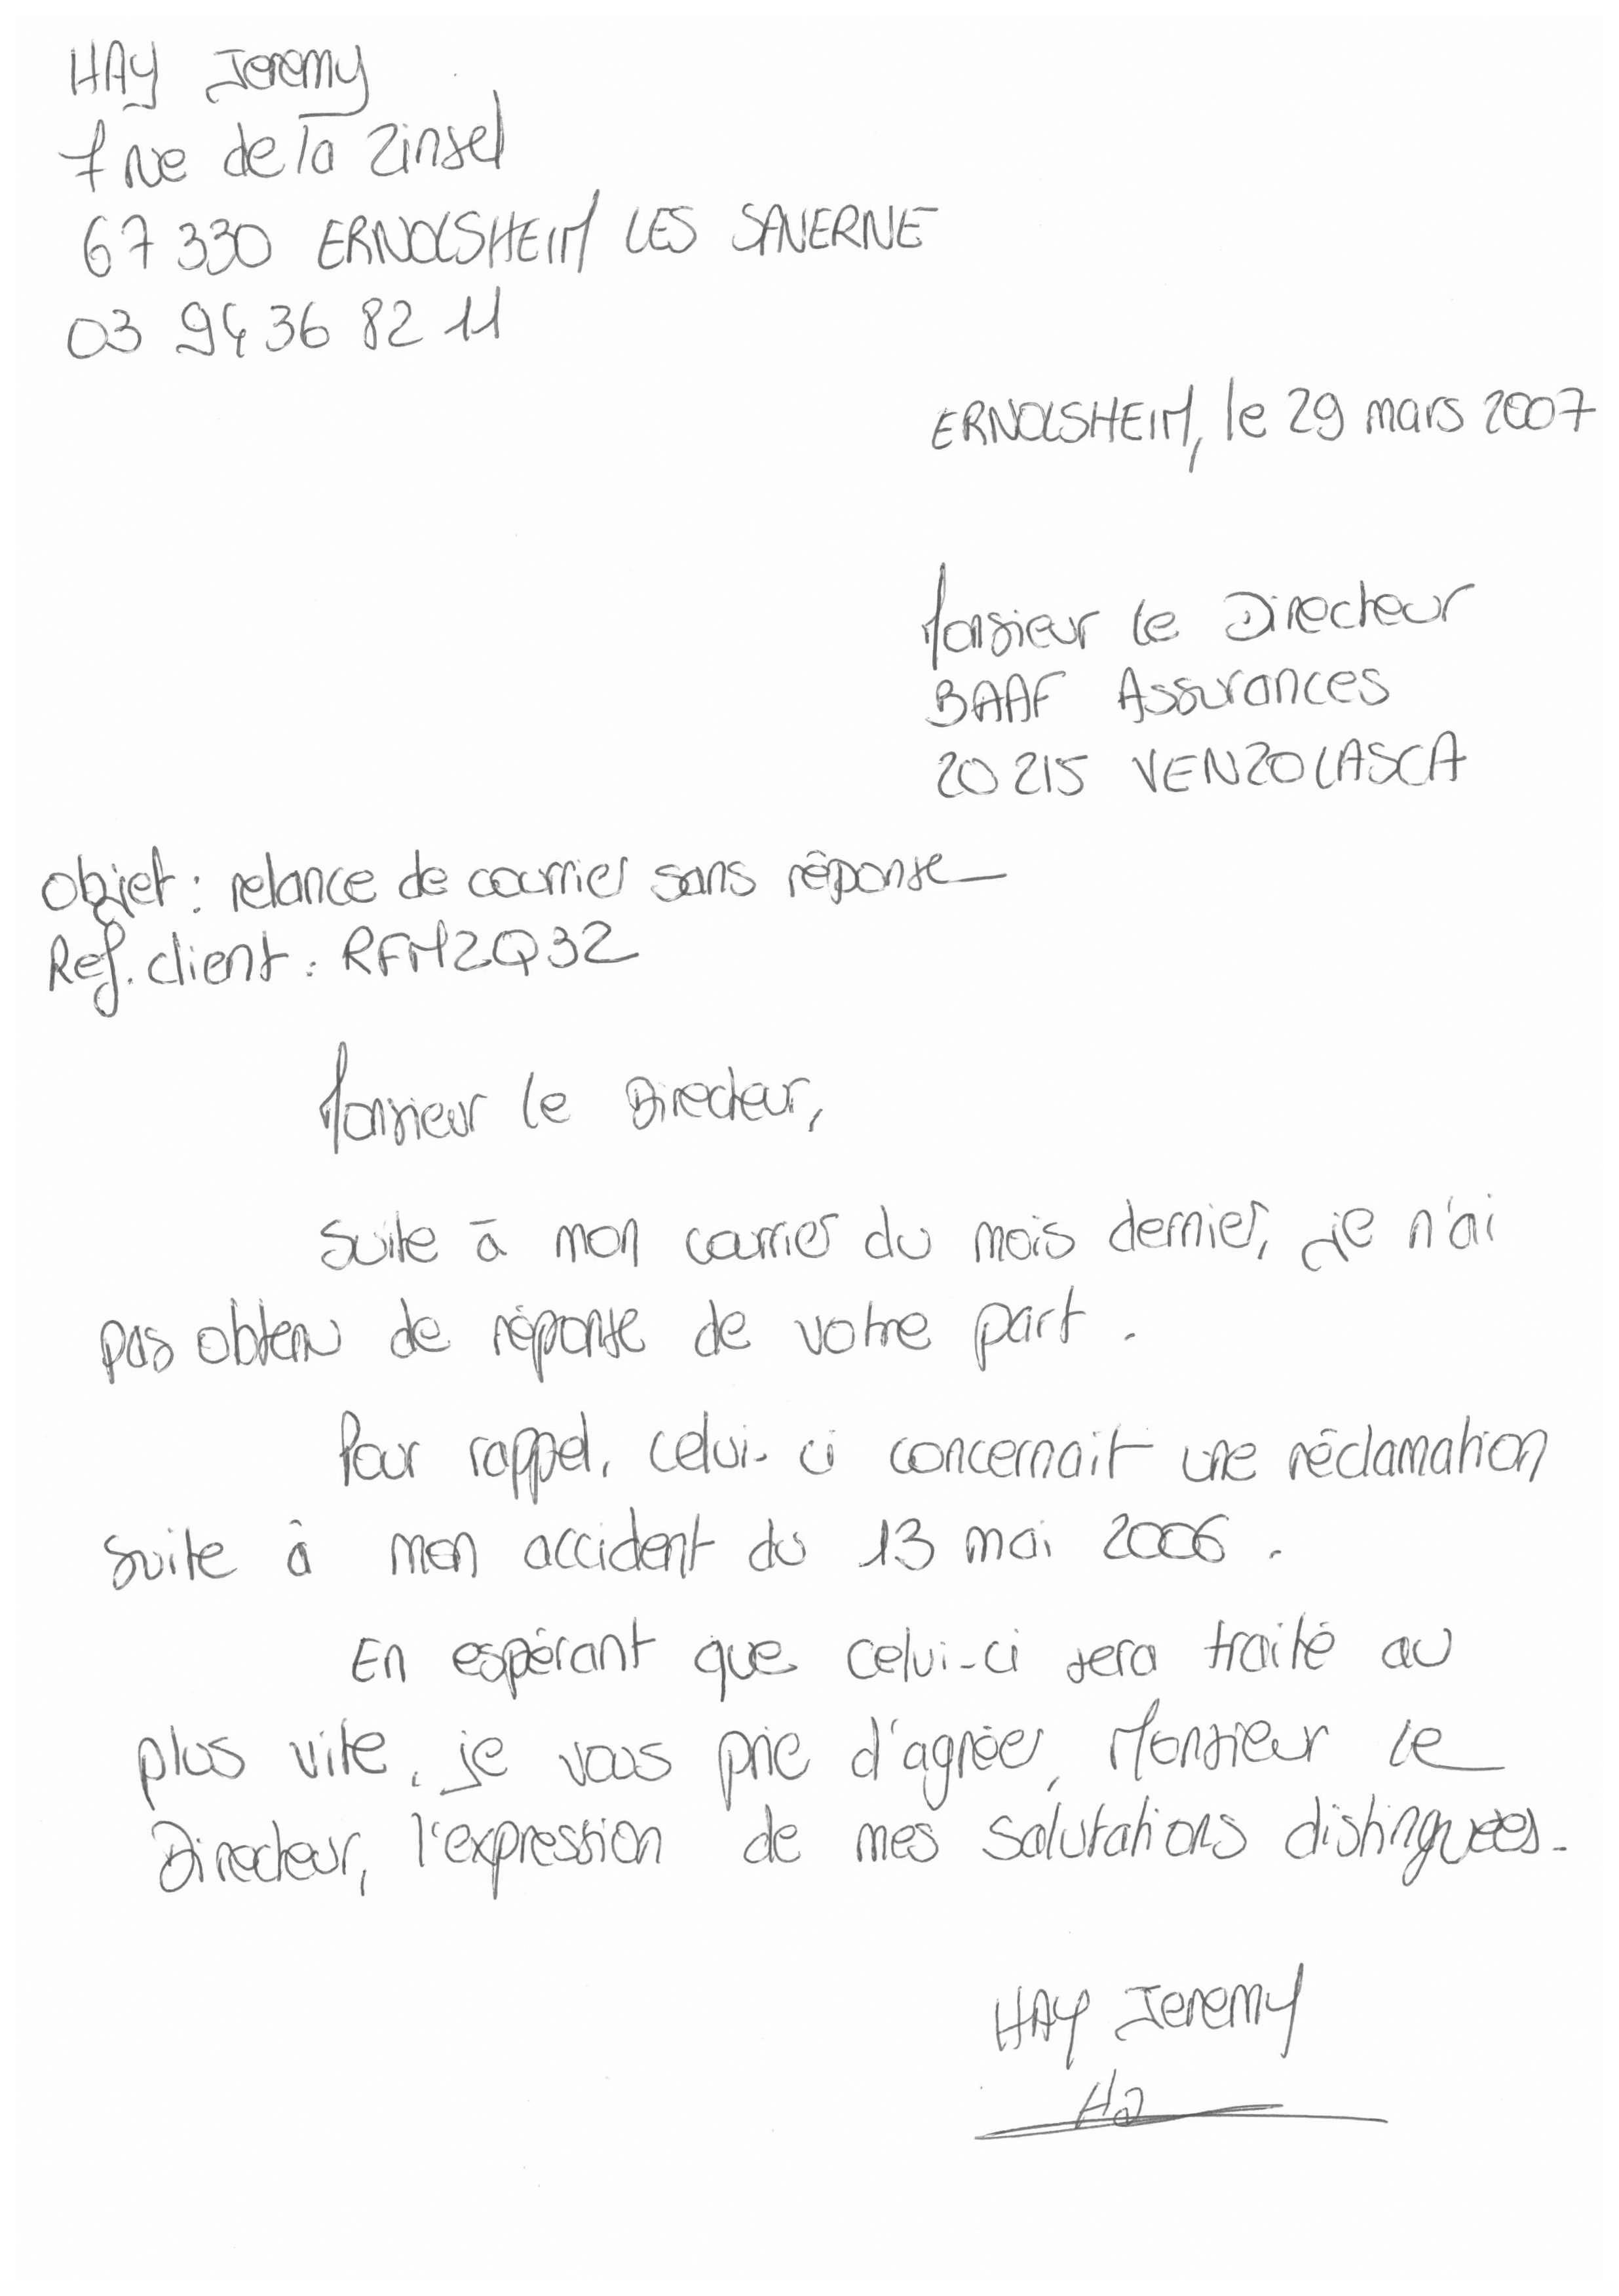 HAY Jeremy
7 rue de la Zinsel
67 330 ERNOLSHEIM LES SAVERNE
03 94 36 82 11
ERNOLSHEIM, le 29 mars 2007
Monsieur le Directeur
BAAF Assurances
20 215 VENZOLASCA
Objet : relance de courrier sans réponse
Ref. client : RFM2Q32
Monsieur le Directeur,
Suite à mon courrier du mois dernier, je n'ai
pas obtenu de réponse de votre part.
Pour rappel, celui-ci concernait une réclamation
suite à mon accident du 13 mai 2006.
En espérant que celui-ci sera traité au
plus vite, je vous prie d'agréer, Monsieur le
Directeur, l'expression de mes salutations distinguées.
HAY Jeremy